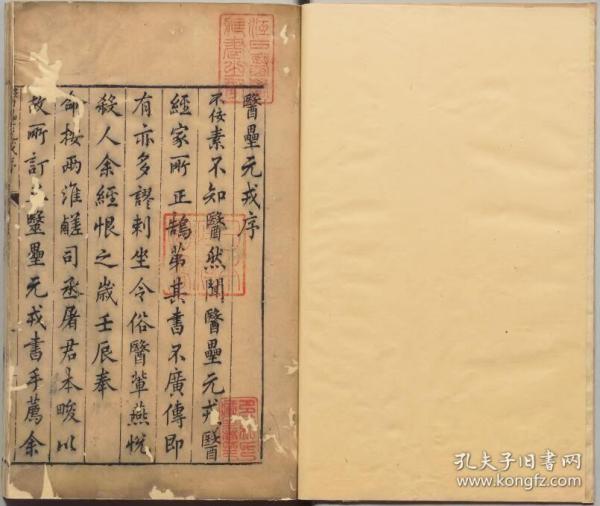 醫壘元戎序
不佞素不知醫然聞醫壘元戎醫
經家所正鵠第其書不廣傳即
有亦多謬剌坐令俗醫輩燕悅
殺人余經恨之歲壬辰奉
命按兩淮鹺司丞屠君本畯以
故所訂醫壘元戎書手薦余
孔夫子旧书网
www.kongfz.com